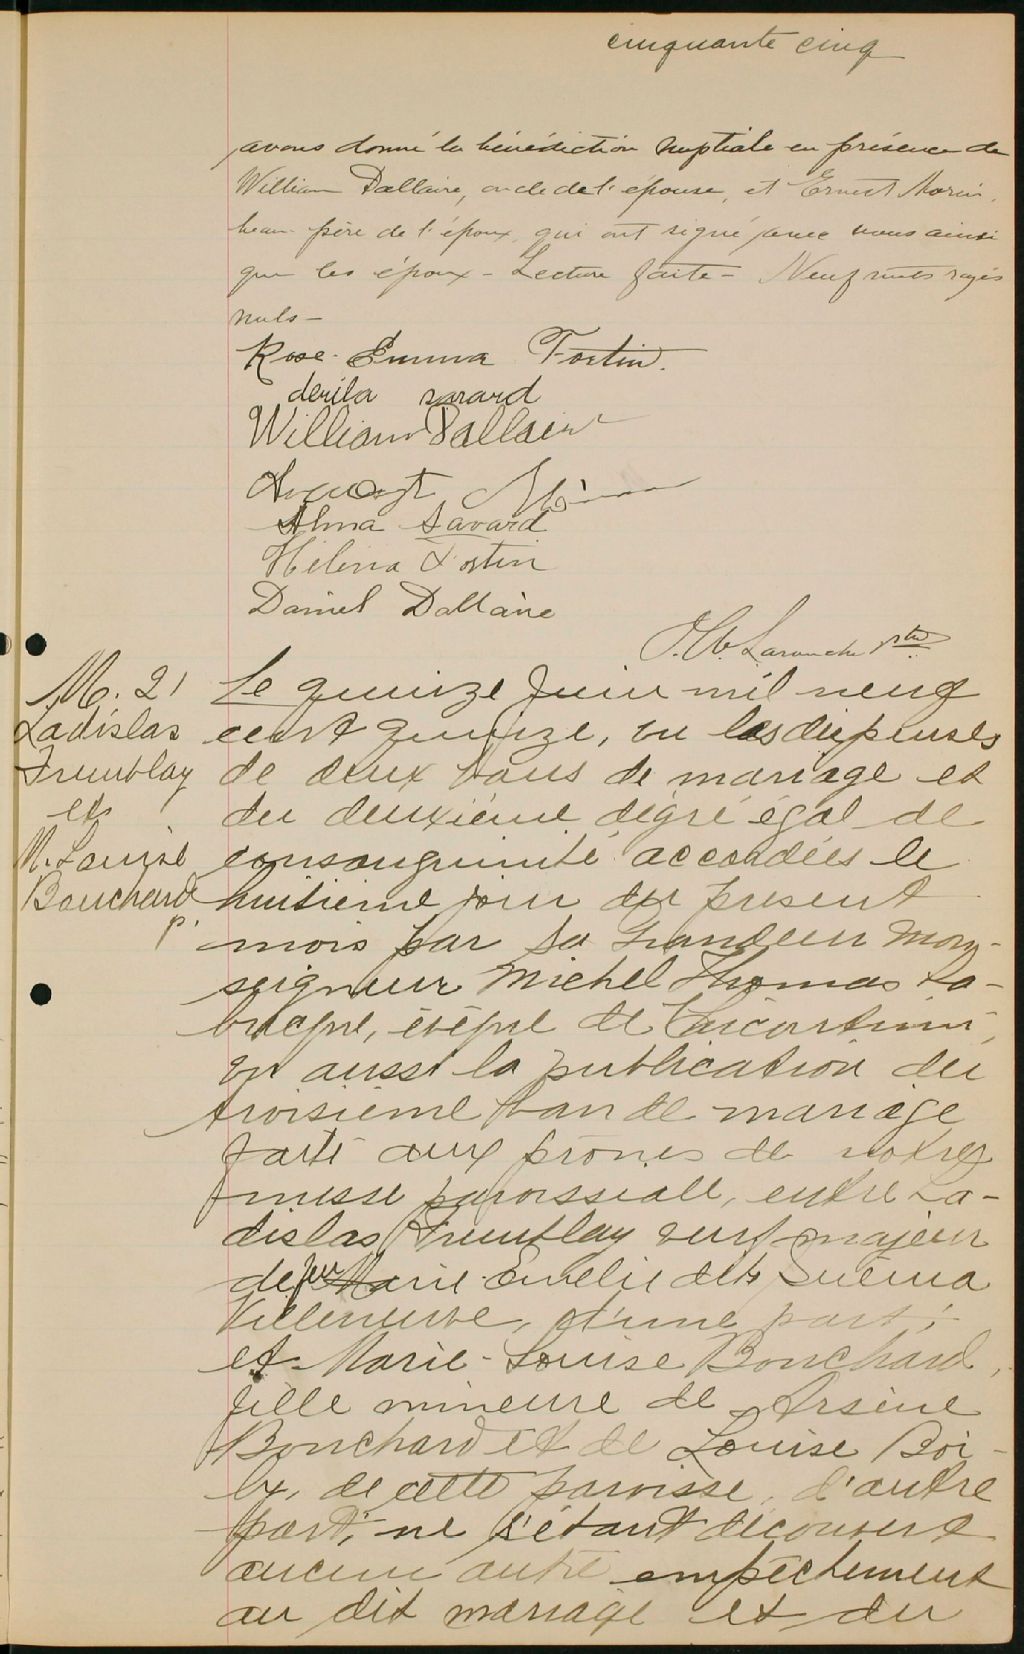 cinquante cinq
avons donné la bénédiction nuptiale en présence de
William Dallaire, oncle de l'épouse, et Ernest Morin,
beau-père de l'époux, qui ont signé avec nous ainsi
que les époux - Lecture faite - Neuf mots rayés
nuls -
Rose-Emma Fortin.
derila savard
William Dallaire
Alma Savard
Hélèna Fortin
Daniel Dallaire
Ptre
M. 21
Ladislas
Tremblay
et
M. Louise
Bouchard
p.
Le quinze juin mil neuf
cent quinze, vu les dispenses
de deux bans de mariage et
du deuxième degré égal de
consanguinité accordées le
huitième jour du présent
mois par Sa Grandeur Mon-
seigneur Michel Thomas La-
brecque, évêque de Chicoutimi,
vu aussi la publication du
troisième ban de mariage
faite aux prônes de notre
messe paroissiale, entre La-
dislas Tremblay veuf majeur
de feu Marie-Emélie dite
Villeneuve, d'une part;
et Marie-Louise Bouchard,
fille mineure de Arsène
Bouchard et de Louise Boi-
ly, de cette paroisse, d'autre
part; ne s'étant découvert
aucun autre empêchement
au dit mariage et du